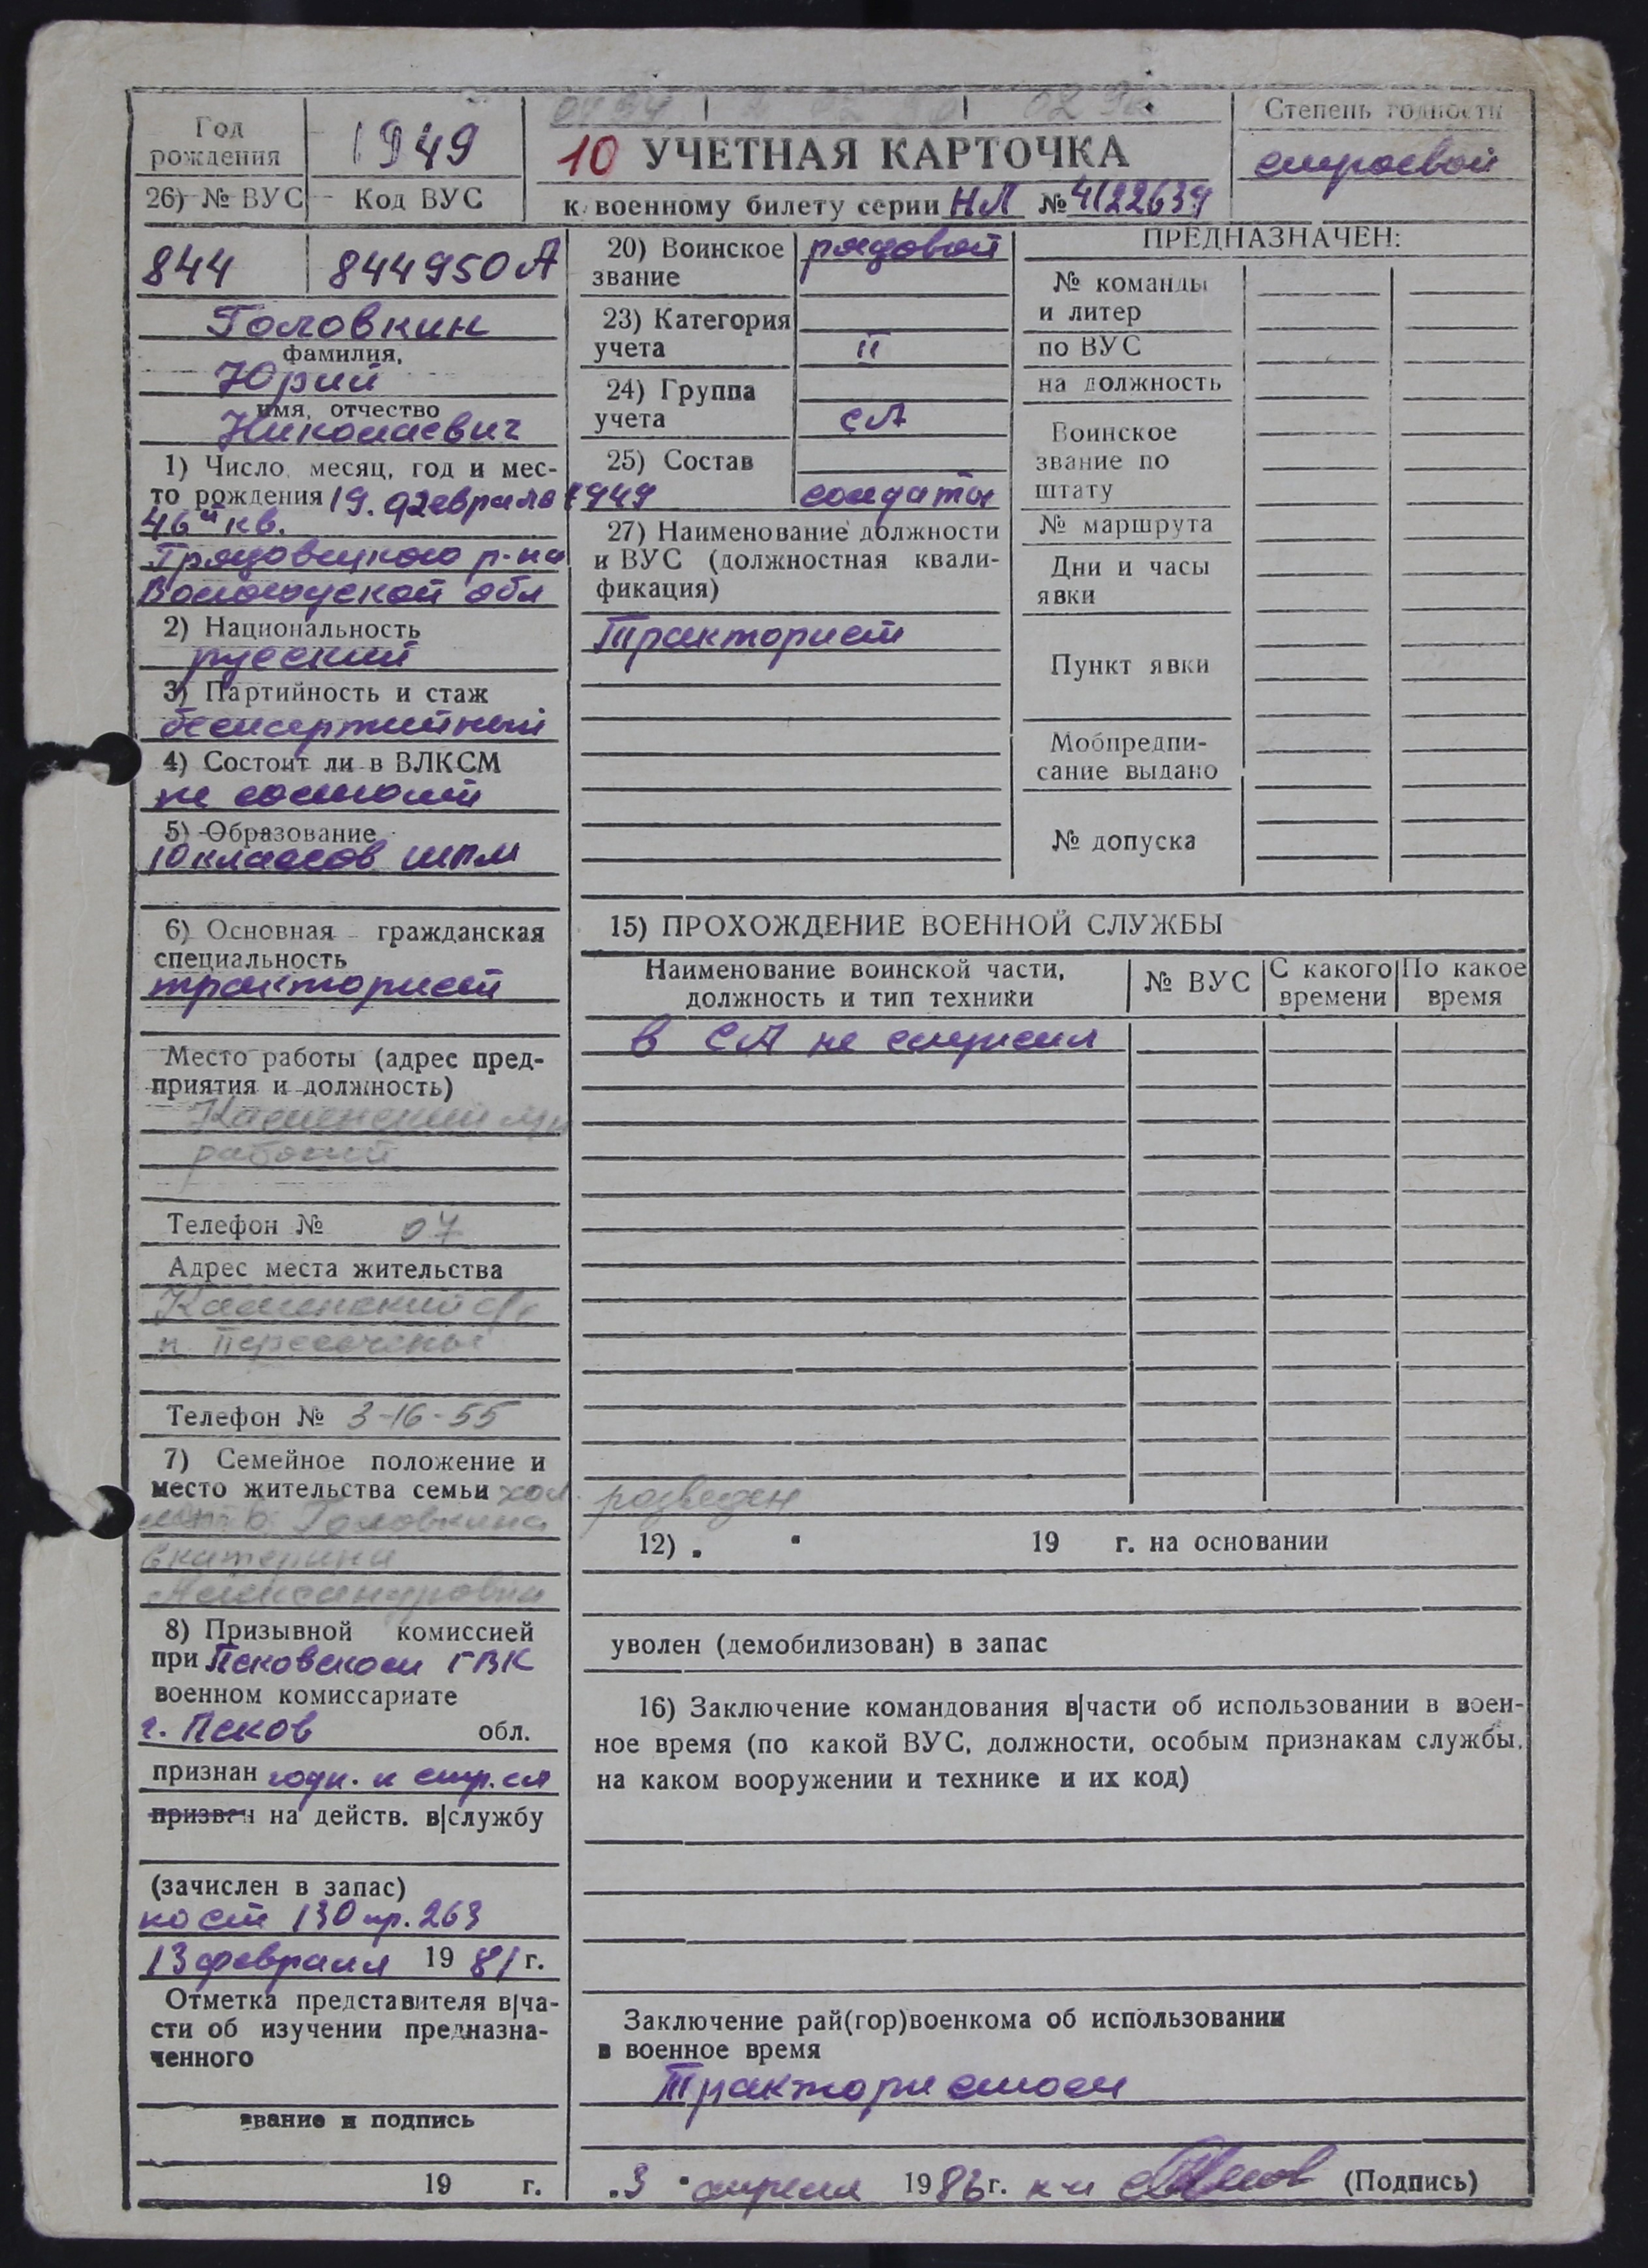 Год рождения
1949
10 УЧЕТНАЯ КАРТОЧКА
Степень годности
строевой
26) № ВУС
Код ВУС
к военному билету серии НЛ № 4122639
844
844950А
Головкин
фамилия,
Юрий
имя, отчество
Николаевич
1) Число, месяц, год и мес-
то рождения 19. февраля 1949
46й кв.
Грязовецкого р-на
Вологодской обл
2) Национальность
русский
3) Партийность и стаж
беспартийный
4) Состоит ли в ВЛКСМ
не состоит
5) Образование
10 классов ШРМ
6) Основная гражданская
специальность
тракторист
Место работы (адрес пред-
приятия и должность)
Каменский
рабочий
Телефон № 07
Адрес места жительства
Каменский
Телефон № 3-16-55
7) Семейное положение и
место жительства семьи хол. разведен
мать Головкина
Екатерина
Александровна
8) Призывной комиссией
при Псковском ГВК
военном комиссариате
г. Псков обл.
признан годн. к стр. сл
призван на действ. в|службу
(зачислен в запас)
по ст 130 пр. 263
13 февраля 1981 г.
Отметка представителя в|ча-
сти об изучении предназна-
ченного
звание и подпись
19 г.
20) Воинское
звание
рядовой
23) Категория
учета
II
24) Группа
учета
СА
25) Состав
солдаты
27) Наименование должности
и ВУС (должностная квали-
фикация)
Тракторист
ПРЕДНАЗНАЧЕН:
№ команды
и литер
по ВУС
на должность
Воинское
звание по
штату
№ маршрута
Дни и часы
явки
Пункт явки
Мобпредпи-
сание выдано
№ допуска
15) ПРОХОЖДЕНИЕ ВОЕННОЙ СЛУЖБЫ
Наименование воинской части,
должность и тип техники
№ ВУС
С какого
времени
По какое
время
в СА не служил
12) . " 19 г. на основании
уволен (демобилизован) в запас
16) Заключение командования в|части об использовании в воен-
ное время (по какой ВУС, должности, особым признакам службы,
на каком вооружении и технике и их код)
Заключение рай(гор)военкома об использовании
в военное время
Трактористом
. 3 " апреля 1983 г. (Подпись)